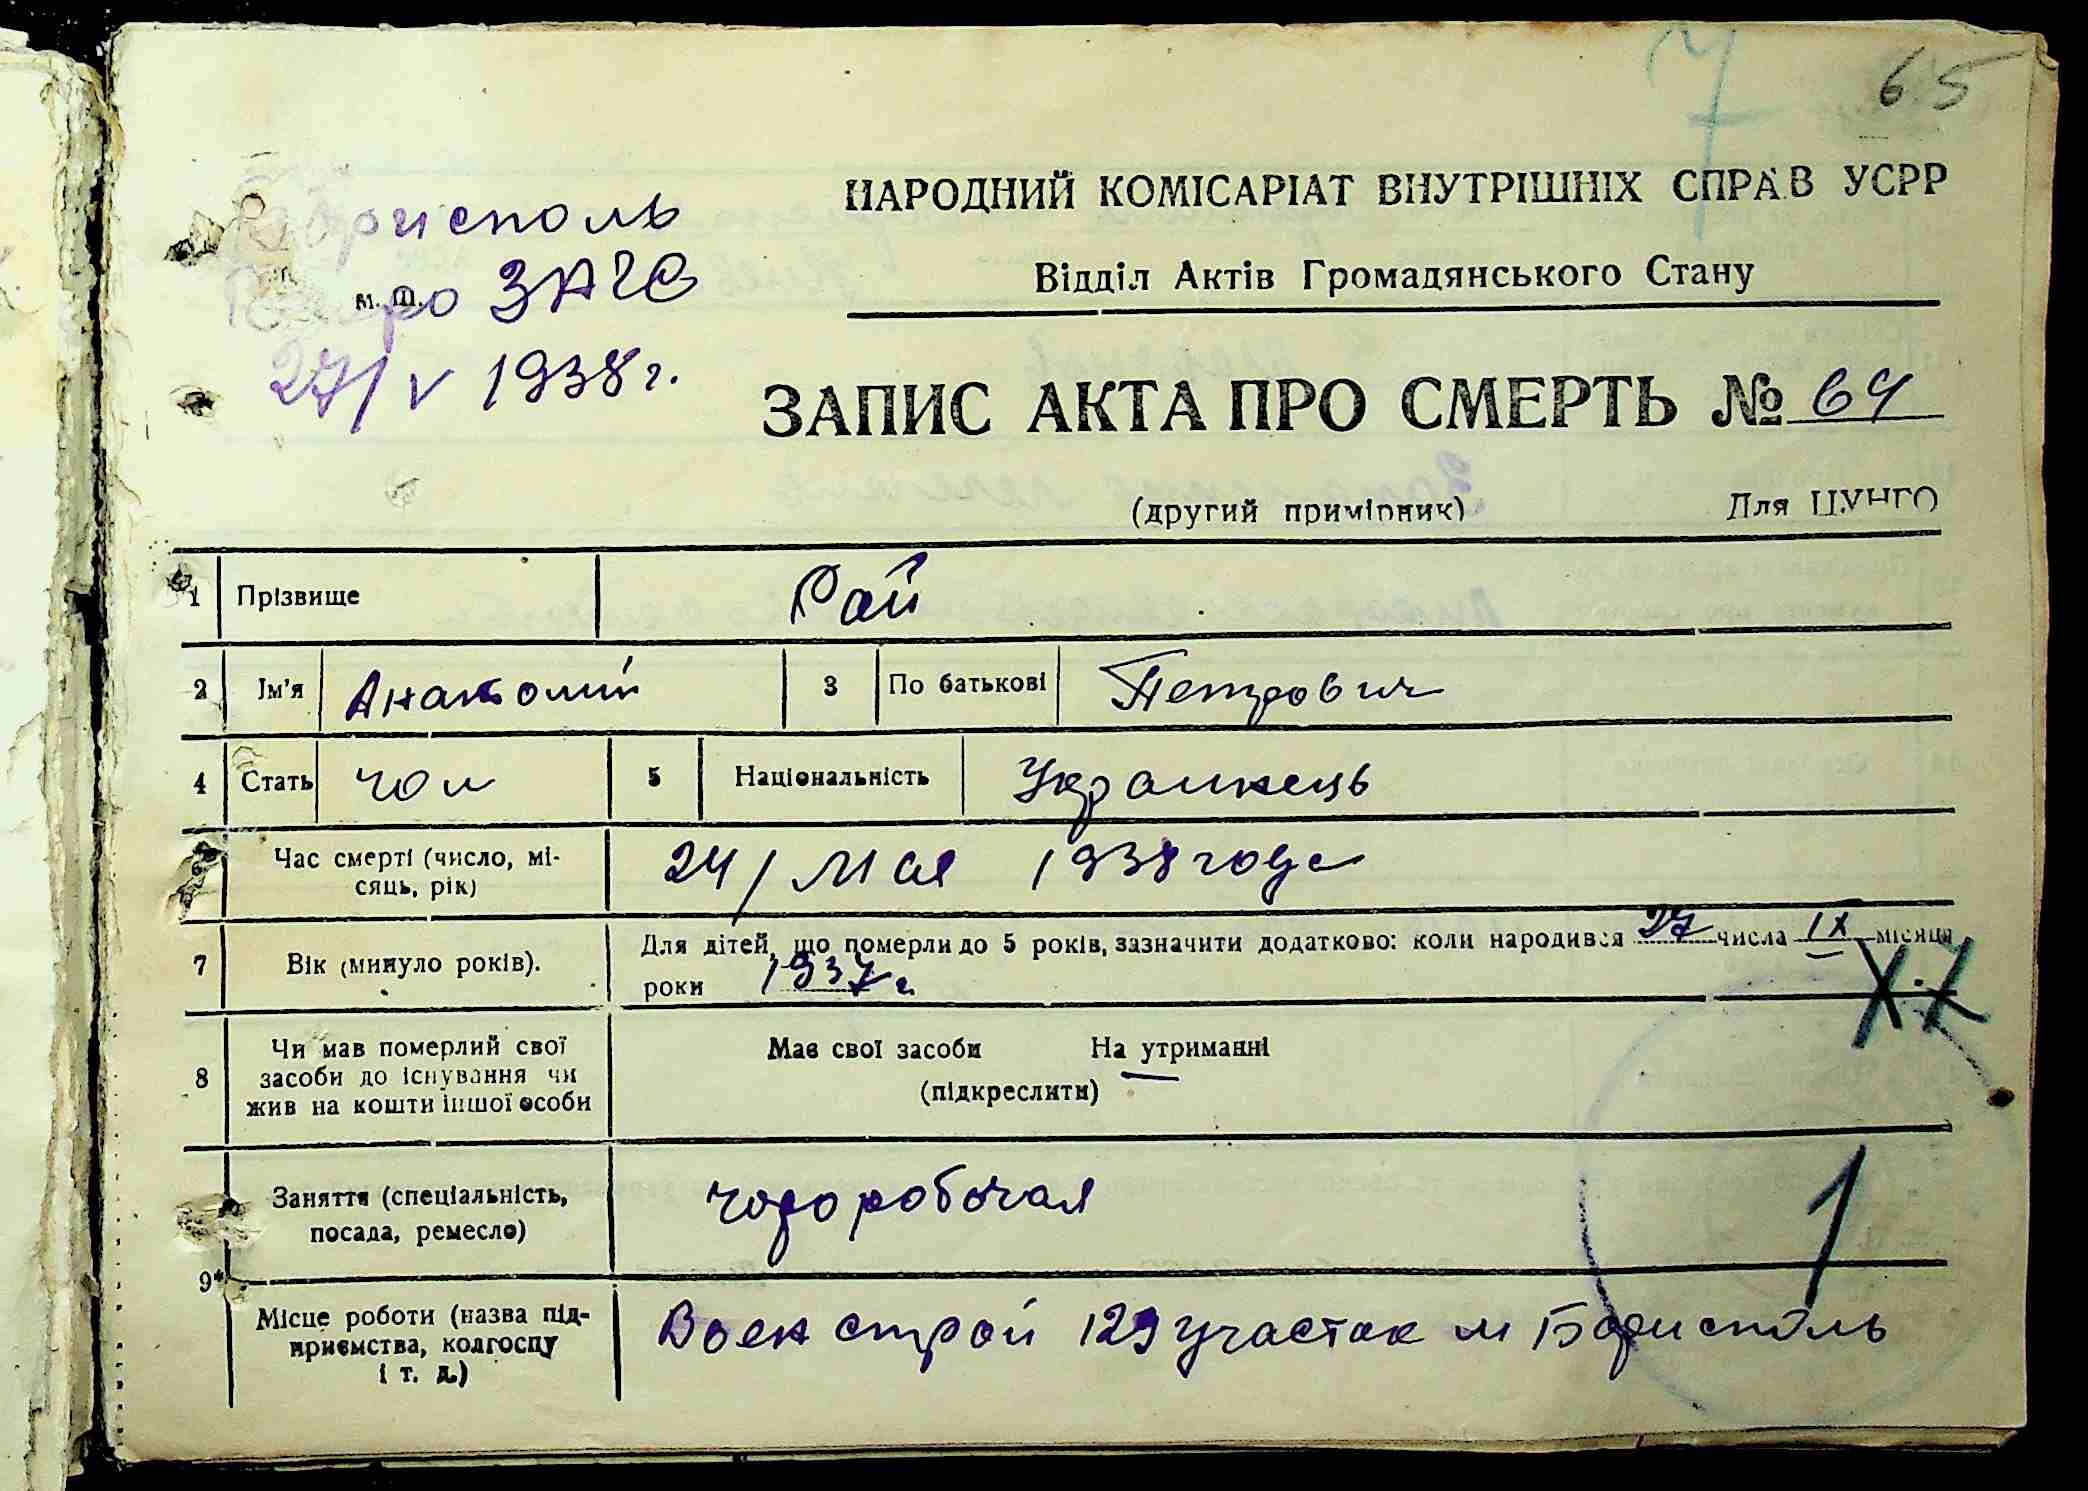 7
65
Борисполь
м. Ш.
бюро ЗАГС
27/V 1938 г.
НАРОДНИЙ КОМІСАРІАТ ВНУТРІШНІХ СПРАВ УСРР
Відділ Актів Громадянського Стану
ЗАПИС АКТА ПРО СМЕРТЬ № 64
(другий примірник) Для ЦУНГО
1 Прізвище Рай
2 Ім'я Анатолий 3 По батькові Петрович
4 Стать чол 5 Національність Украинець
6 Час смерті (число, мі-
сяць, рік) 24/ мая 1938 года
7 Вік (минуло років). Для дітей, що померли до 5 років, зазначити додатково: коли народився 27 числа IX місяця
роки 1937 г.
X-7
8 Чи мав померлий свої
засоби до існування чи
жив на кошти іншої особи
Має свої засоби На утриманні
(підкреслити)
Заняття (спеціальність,
посада, ремесло) чороробочая
1
9*
Місце роботи (назва під-
приємства, колгоспу
і т. д.) Военстрой 129 участок м Борисполь